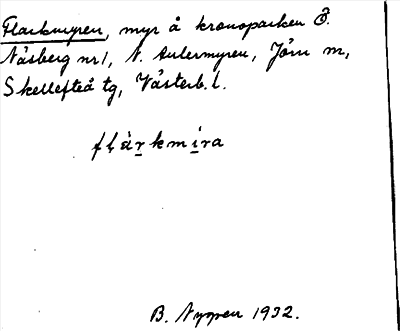 Flarkmyren, myr å kronoparken Ö.
Näsberg nr 1, N. Aulermyren, Jörn m,
Skellefteå tg, Västerb. l.
flàrkmíra
B. Nyppen 1932.